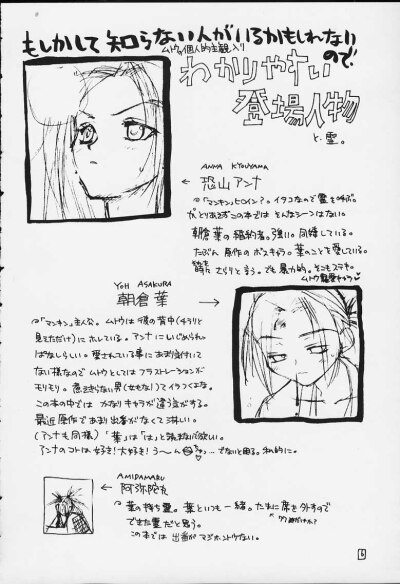 もしかして知らない人がいるかもしれない
ので
ムトウの個人的主観入り
わかりやすい
登場人物
と、霊。
ANNA KYOUYAMA
← 恐山アンナ
「マンキン」ヒロイン?。イタコなので霊を呼ぶ。
がとりあえずこの本ではそんなシーンはない。
朝倉葉の婚約者。強い。同棲している。
たぶん原作のボスキャラ。葉のことを愛している。
さらりと言う。でも暴力的。そこもステキ。
YOH ASAKURA
朝倉葉 →
「マンキン」主人公。ムトウは彼の背中(チラリと
見せただけ)にホレている。アンナにいじめられっ
ぱなしらしい。愛されている事にあまり気付いて
ない様なのでムトウとしてはフラストレーションが
モリモリ。
この本の中ではかなりキャラが違う気がする。
最近原作であまり出番がなくて淋しい。
(アンナも同様)「葉」は「よう」と読んでね
アンナのコトは好き!大好き!う~ん
でないと困る。私的に。
AMIDAMARU
阿弥陀丸
葉の持ち霊。葉といつも一緒。たまに席を外すので
できた霊だと思う。
この本では出番がマジホントうない。
6